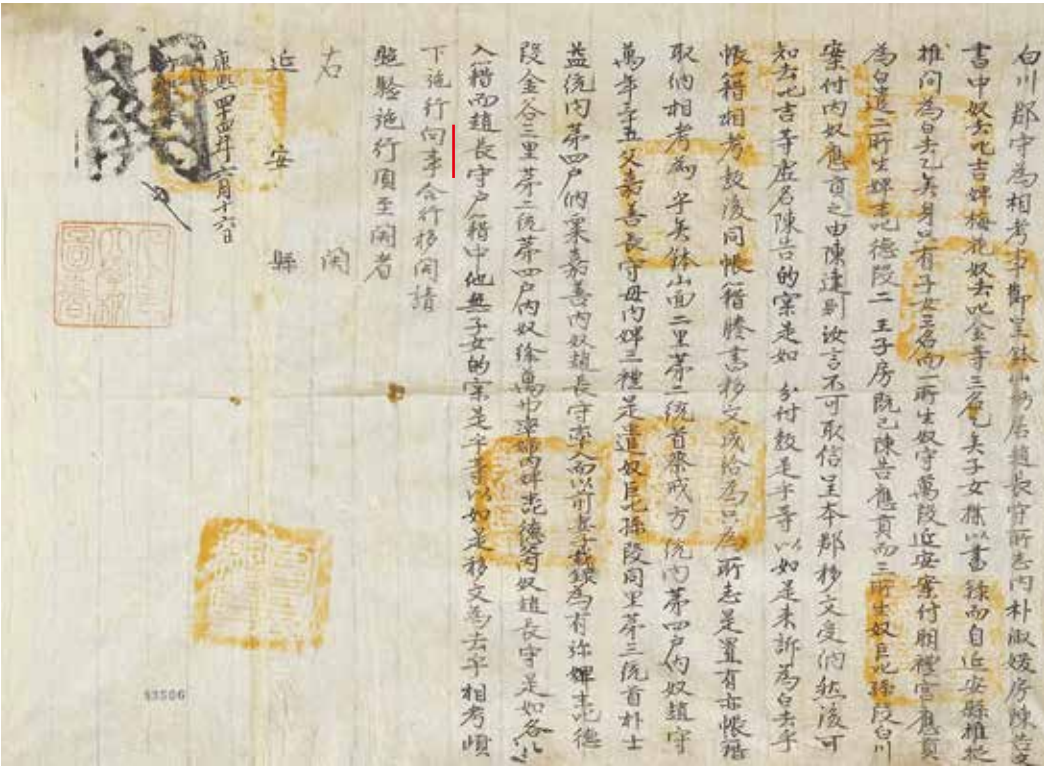 白川郡守為相考事節呈鉢山面居趙長守所志內朴淑媛房陳告文
書中奴去叱吉婢梅花奴去叱金等三名乙矣子女㨾以書錄而自延安縣推捉
推問為白去乙矣身只有子女三名而一所生奴守萬段延安案付明禮宮應貢
為白遣二所生婢唜德段二王子房既已陳告應貢而三所生奴巨叱孫段白川
案付內奴應貢之由陳達則汝言不可取信呈本郡移文受納然後可
知去叱吉等虛名陳告的實是如 分付敎是乎等以如是來訴為白去乎
帳籍相考敎後同帳籍謄書移文成給為只為所志是置有亦帳籍
取納相考為乎矣鉢山面二里第二統首蔡戒方統內第四戶內奴趙守
萬年三十五父嘉善長守母內婢三禮是遣奴巨叱孫段同里第三統首朴士
益統內第四戶納粟嘉善內奴趙長守率人而以前無子載錄為有旀婢唜德
段金谷三里第二統第四戶內奴徐萬妻內婢唜德父奴趙長守是如各各
入籍而趙長守戶籍中他無子女的實是乎等以如是移文為去乎相考順
下施行向事合行移關請
照驗施行須至關者
右 關
延安縣
康熙四十四年六月十六日
關
93506